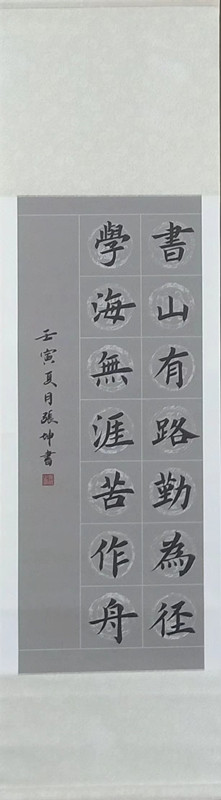 書山有路勤為徑
學海無涯苦作舟
壬寅夏月張坤書